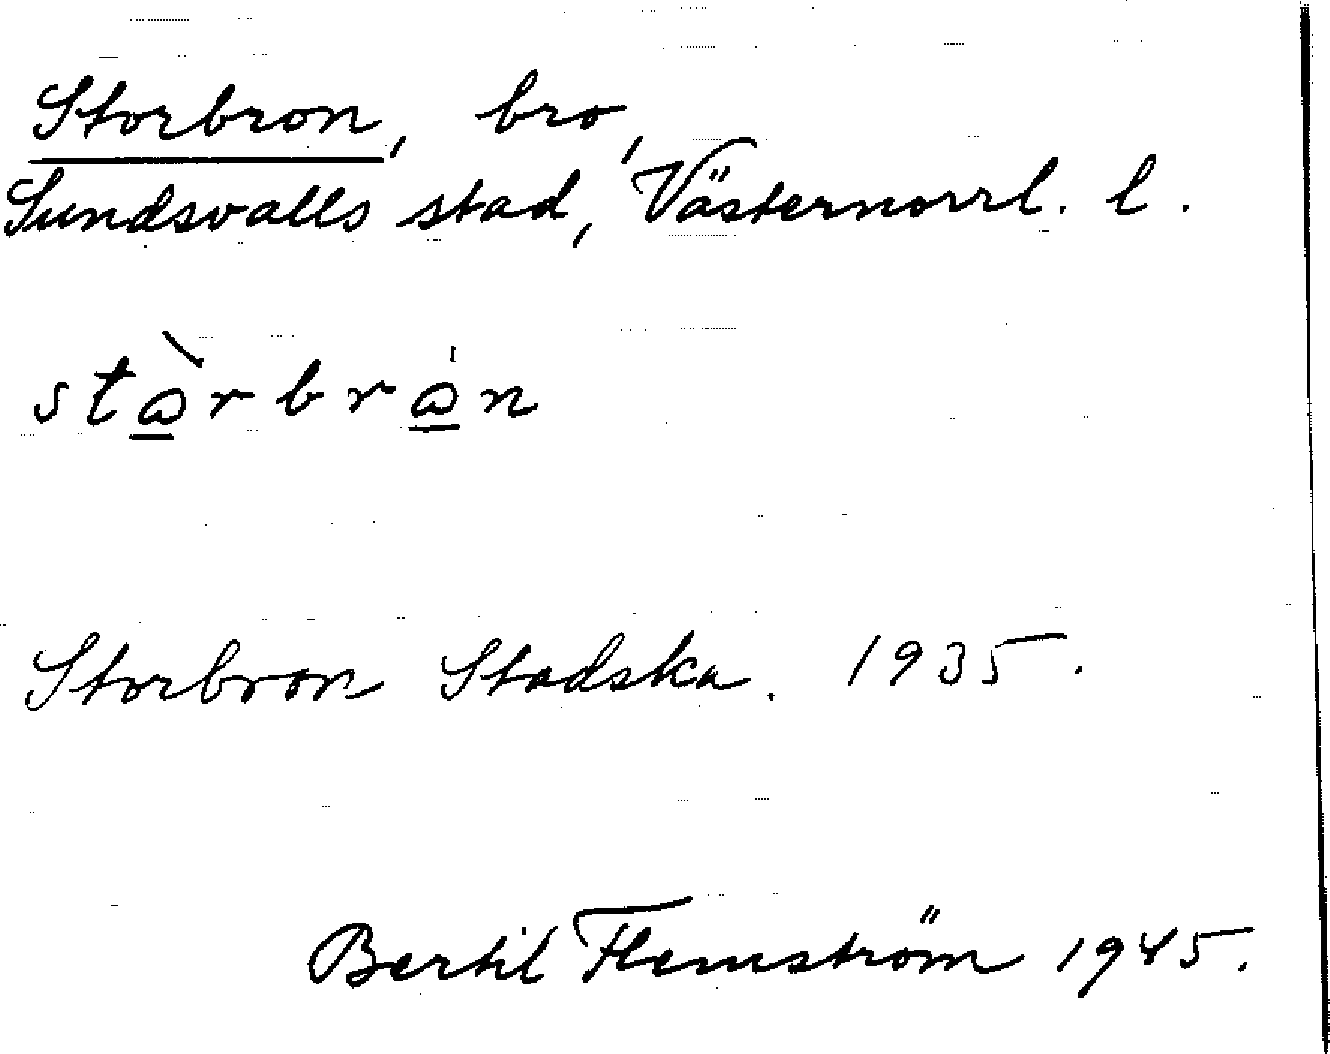 Storbron, bro,
Sundsvalls stad, Västernorrl. l.
stɷ̀rbrɷ̍n
Storbron Stadska. 1935.
Bertil Flemström 1945.